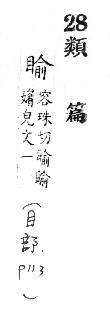 28類篇
睮 容珠切睮睮
媚皃文一
(目部. p113)